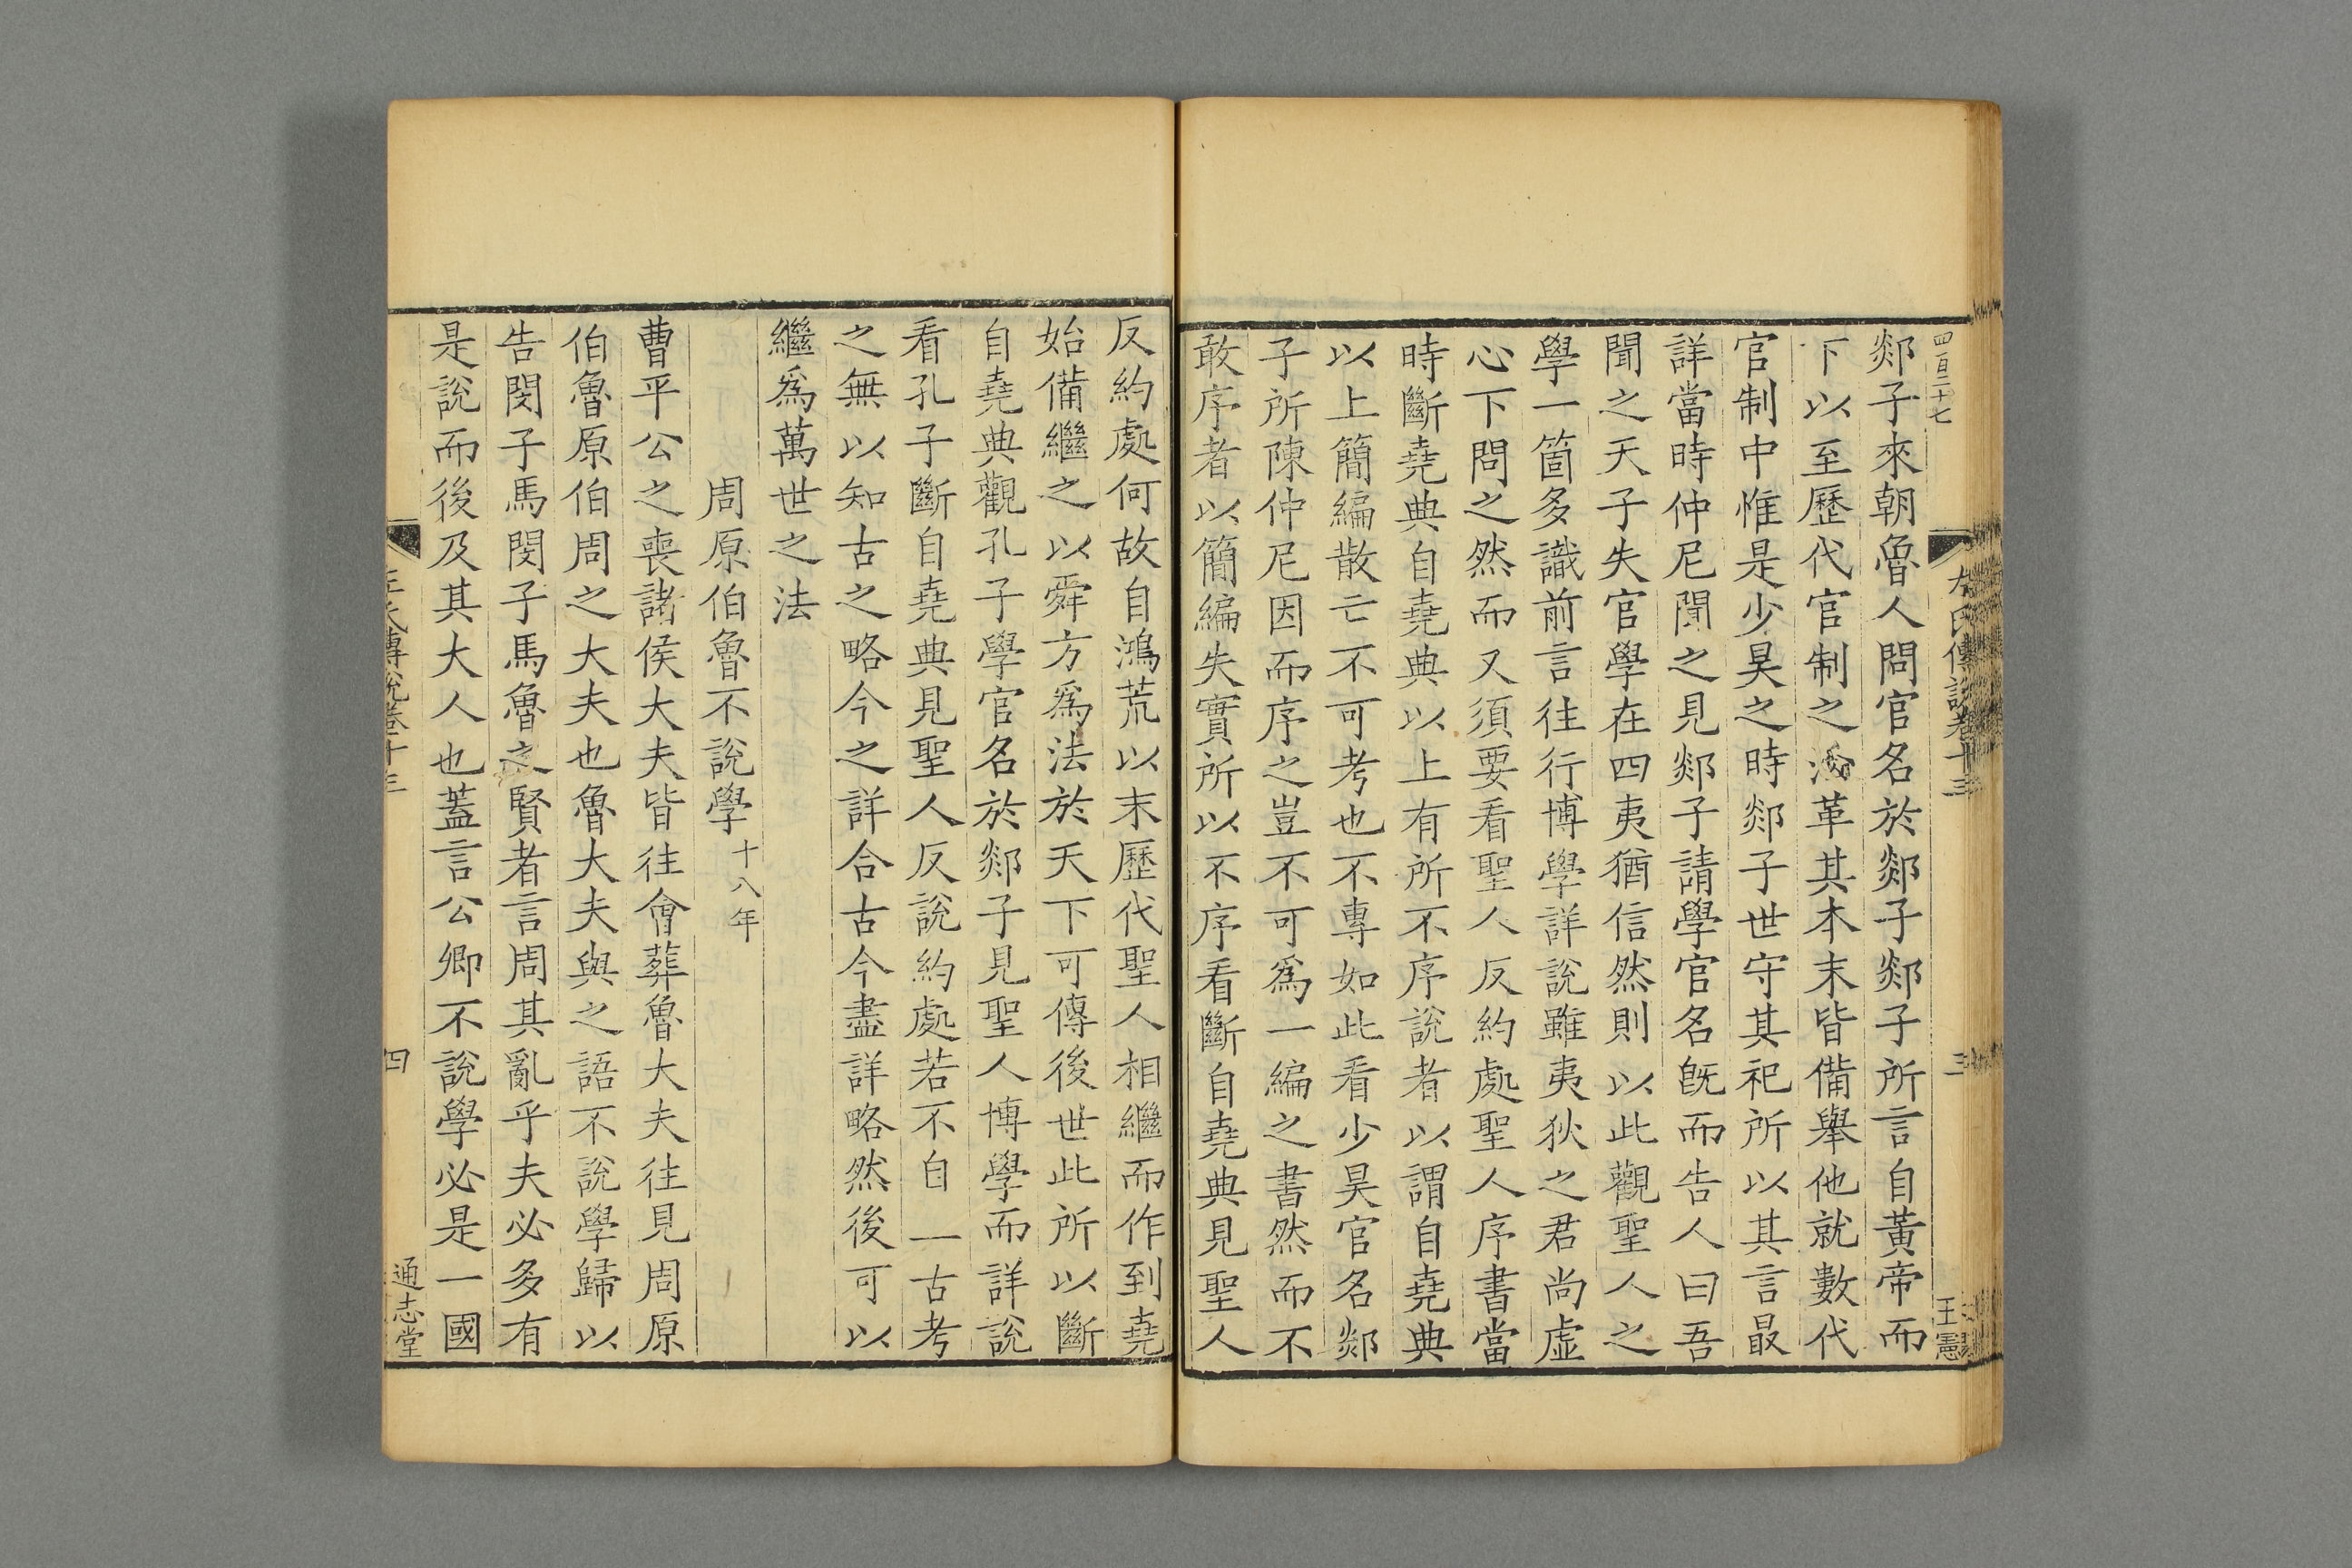 四百二十七
左氏傳說卷十三
三
王憲
郯子來朝魯人問官名於郯子郯子所言自黃帝而
下以至歷代官制之㳂革其本末皆備舉他就數代
官制中惟是少昊之時郯子世守其祀所以其言最
詳當時仲尼聞之見郯子請學官名旣而告人曰吾
聞之天子失官學在四夷猶信然則以此觀聖人之
學一箇多識前言往行博學詳說雖夷狄之君尚虛
心下問之然而又須要看聖人反約處聖人序書當
時斷堯典自堯典以上有所不序說者以謂自堯典
以上簡編散亡不可考也不專如此看少昊官名郯
子所陳仲尼因而序之豈不可爲一編之書然而不
敢序者以簡編失實所以不序看斷自堯典見聖人
反約處何故自鴻荒以末歷代聖人相繼而作到堯
始備繼之以舜方爲法於天下可傳後世此所以斷
自堯典觀孔子學官名於郯子見聖人博學而詳說
看孔子斷自堯典見聖人反說約處若不自一古考
之無以知古之略今之詳合古今盡詳略然後可以
繼爲萬世之法
周原伯魯不說學十八年
曹平公之喪諸侯大夫皆往會葬魯大夫往見周原
伯魯原伯周之大夫也魯大夫與之語不說學歸以
告閔子馬閔子馬魯之賢者言周其亂乎夫必多有
是說而後及其大人也蓋言公卿不說學必是一國
左氏傳說卷十三
四
通志堂